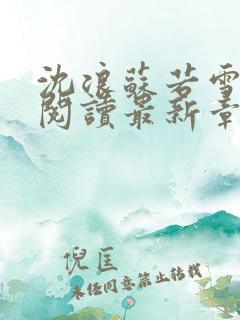 沈浪蘇若雪
閱讀最新章
倪匡
未经同意禁止转载